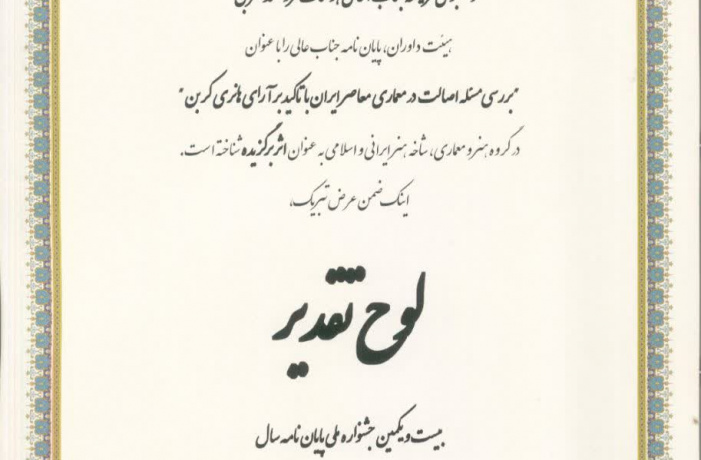 هیئت داوران، پایان نامه جناب عالی را با عنوان
"بررسی مسئله اصالت در معماری معاصر ایران با تاکید بر آرای هانری کربن"
در گروه هنر و معماری، شاخه هنر ایرانی و اسلامی به عنوان اثر برگزیده شناخته است.
اینک ضمن عرض تبریک،
لوح تقدیر
بیست و یکمین جشنواره ملی پایان نامه سال